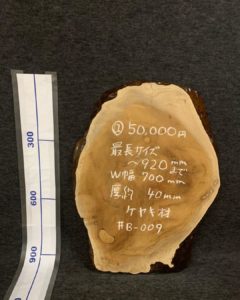 ② 50,000円
最長サイズ
～920mmまで
W幅 700mm
厚約 40mm
ケヤキ材
#B-009
300
600
900